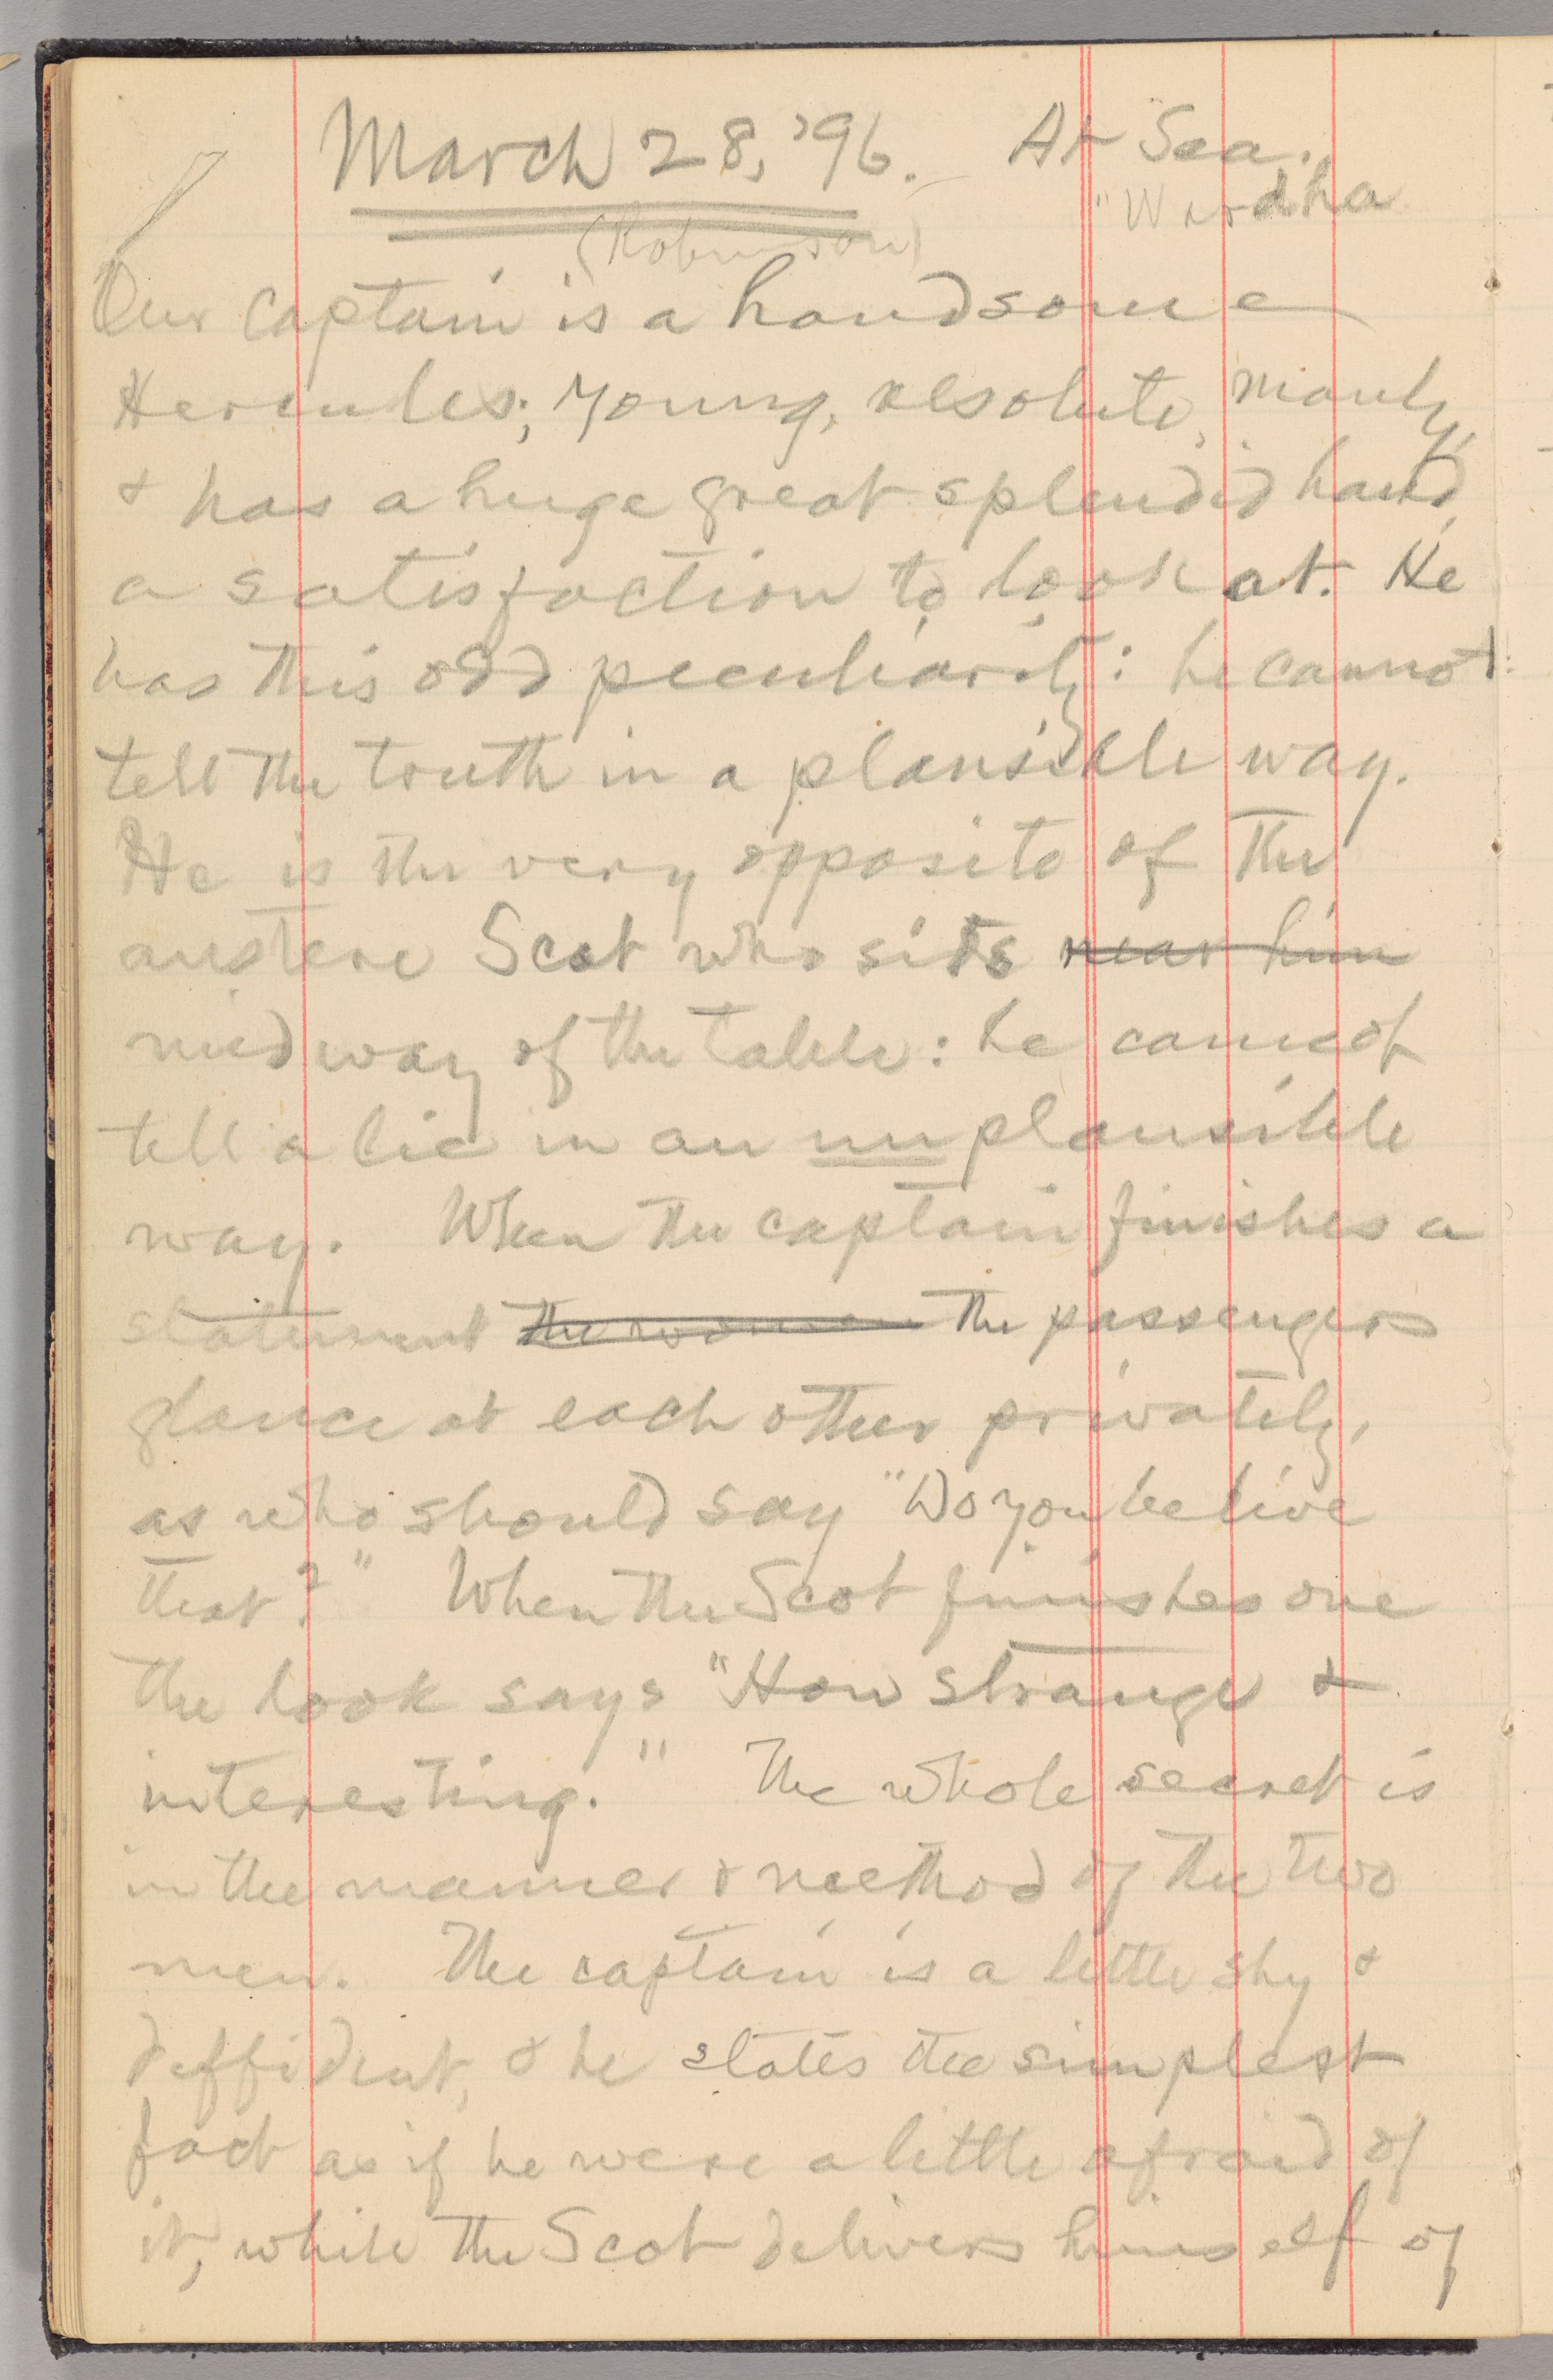 March 28, '96. At Sea.
"Wardha
(Robinson)
Our captain is a handsome
Hercules; young, resolute, manly,
& has a huge great splendid hand,
a satisfaction to look at. He
has this odd peculiarity: he cannot
tell the truth in a plausible way.
He is the very opposite of the
austere Scot who sits near him
midway of the table: he cannot
tell a lie in an unplausible
way. When the captain finishes a
statement the women the passengers
glance at each other privately,
as who should say "Do you believe
that?" When the Scot finishes one
the look says "How strange &
interesting." The whole secret is
in the manner & method of the two
men. The captain is a little shy &
diffident, & he states the simplest
fact as if he were a little afraid of
it, while the Scot delivers himself of